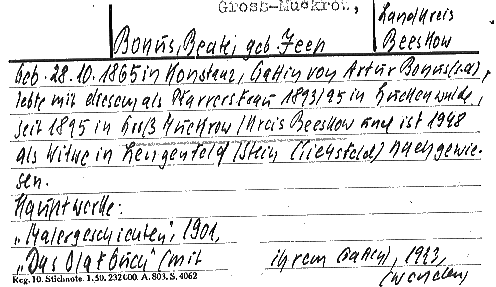 Gross-Muckrow,
Landkreis
Beeskow
Bonus, Beate, geb. Jeep
Geb. 28.10.1865 in Konstanz, Gattin von Artur Bonus (s.d.),
lebte mit diesem als Pfarrersfrau 1893/95 in Luckenwalde,
seit 1895 in Groß Muckrow/Kreis Beeskow und ist 1948
als Witwe in Lengenfeld/Stein (Eichsfeld) nachgewie-
sen.
Hauptwerke:
„Malergeschichten", 1901,
„Das Olafbuch" (mit ihrem Gatten),
(wenden)
Reg. 10. Stichnote. 1. 50. 232000. A. 803. S. 4062